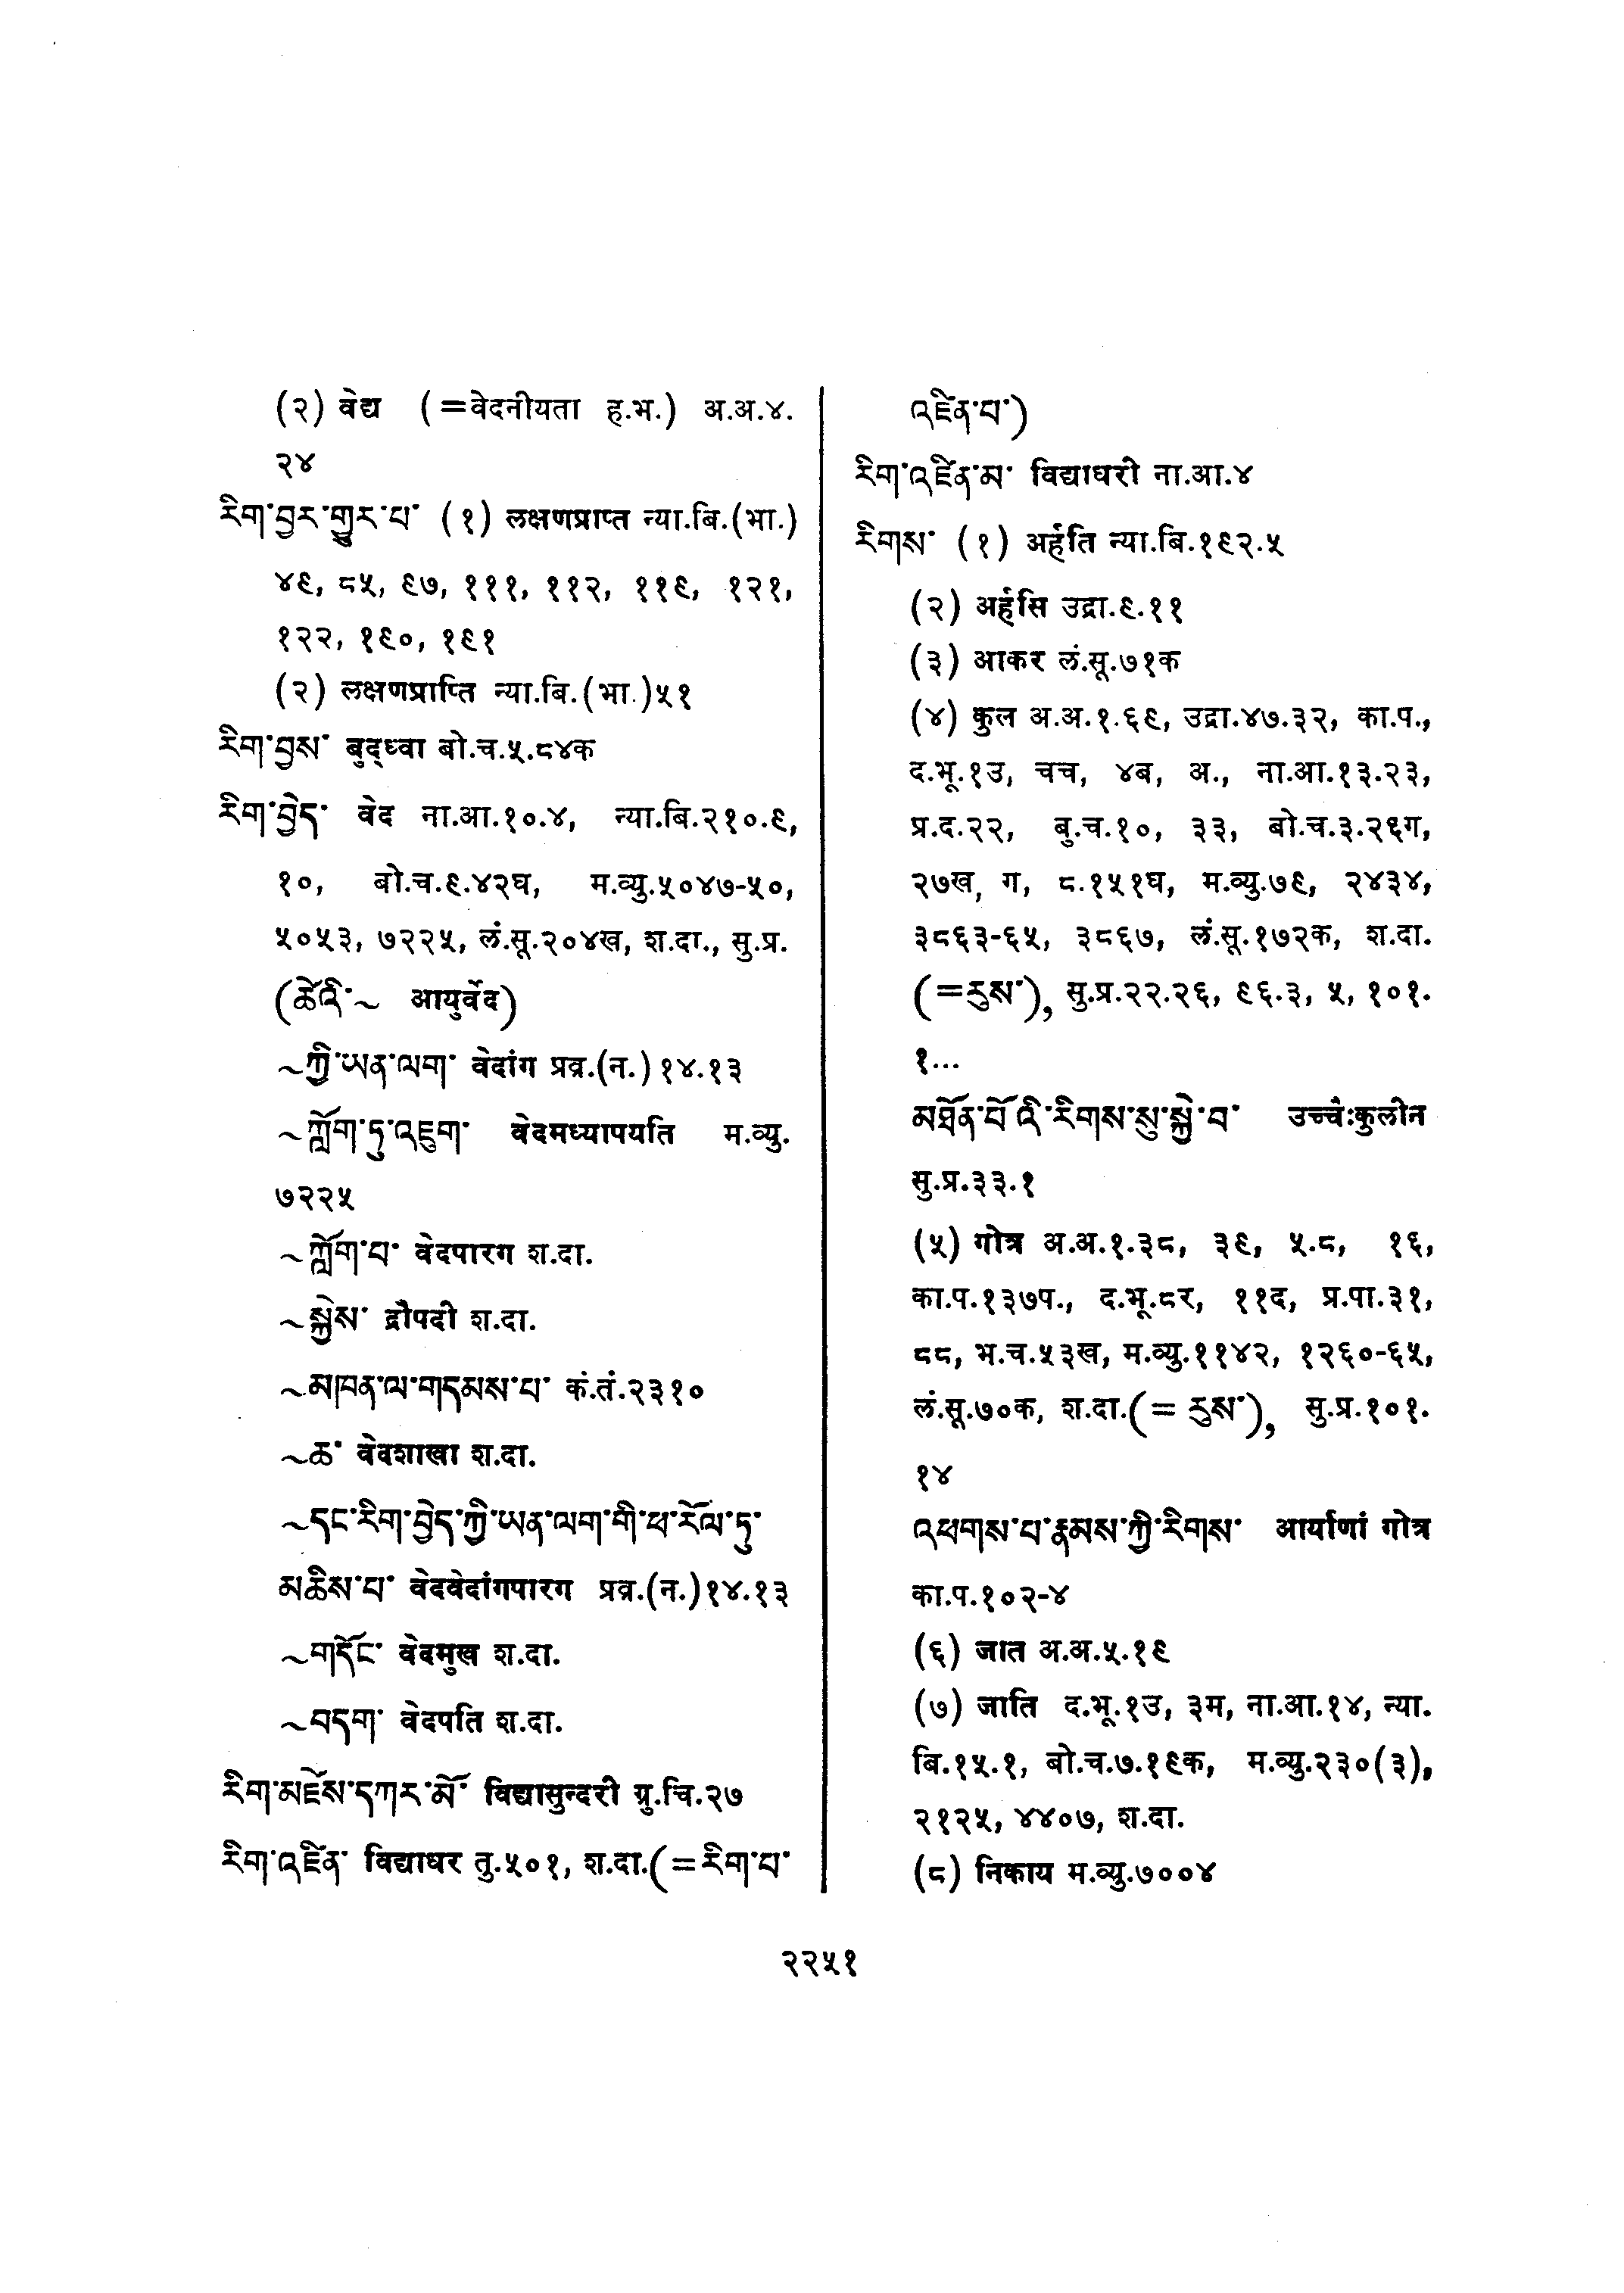 (२) वेद्य (=वेदनीयता ह.भ.) अ.अ.४.
२४
རིག་བྱར་གྱུར་པ་ (१) लक्षणप्राप्त न्या.बि.(भा.)
४९, ८५, ९७, १११, ११२, ११९, १२१,
१२२, १९०, १९१
(२) लक्षणप्राप्ति न्या.बि.(भा.)५१
རིག་བྱས་ बुद्ध्वा बो.च.५.८४क
རིག་བྱེད་ वेद ना.आ.१०.४, न्या.बि.२१०.९,
१०, बो.च.९.४२घ, म.व्यु.५०४७-५०,
५०५३, ७२२५, लं.सू.२०४ख, श.दा., सु.प्र.
(ཚེའི་~ आयुर्वेद)
~ཀྱི་ཡན་ལག་ वेदांग प्रव्र.(न.)१४.१३
~ཀློག་ཏུ་འཇུག་ वेदमध्यापयति म.व्यु.
७२२५
~ཀློག་པ་ वेदपारग श.दा.
~སྐྱེས་ द्रौपदी श.दा.
~མཁན་ལ་གདམས་པ་ कं.तं.२३१०
~ཆ་ वेदशाखा श.दा.
~དང་རིག་བྱེད་ཀྱི་ཡན་ལག་གི་ཕ་རོལ་ཏུ་
མཆིས་པ་ वेदवेदांगपारग प्रव्र.(न.)१४.१३
~གདོང་ वेदमुख श.दा.
~བདག་ वेदपति श.दा.
རིག་མཛེས་དཀར་མོ་ विद्यासुन्दरी ग्रु.चि.२७
རིག་འཛིན་ विद्याधर तु.५०१, श.दा.(=རིག་པ་
འཛིན་པ་)
རིག་འཛིན་མ་ विद्याधरी ना.आ.४
རིགས་ (१) अर्हति न्या.बि.१९२.५
(२) अर्हसि उद्रा.९.११
(३) आकर लं.सू.७१क
(४) कुल अ.अ.१.६९, उद्रा.४७.३२, का.प.,
द.भू.१उ, चच, ४ब, अ., ना.आ.१३.२३,
प्र.द.२२, बु.च.१०, ३३, बो.च.३.२६ग,
२७ख, ग, ८.१५१घ, म.व्यु.७९, २४३४,
३८६३-६५, ३८६७, लं.सू.१७२क, श.दा.
(=རུས་), सु.प्र.२२.२६, ९६.३, ५, १०१.
१...
མཐོན་པོའི་རིགས་སུ་སྐྱེ་བ་ उच्चैःकुलीन
सु.प्र.३३.१
(५) गोत्र अ.अ.१.३८, ३९, ५.८, १६,
का.प.१३७प., द.भू.८र, ११द, प्र.पा.३१,
८८, भ.च.५३ख, म.व्यु.११४२, १२६०-६५,
लं.सू.७०क, श.दा.(= རུས་), सु.प्र.१०१.
१४
འཕགས་པ་རྣམས་ཀྱི་རིགས་ आर्याणां गोत्र
का.प.१०२-४
(६) जात अ.अ.५.१९
(७) जाति द.भू.१उ, ३म, ना.आ.१४, न्या.
बि.१५.१, बो.च.७.१९क, म.व्यु.२३०(३),
२१२५, ४४०७, श.दा.
(८) निकाय म.व्यु.७००४
२२५१